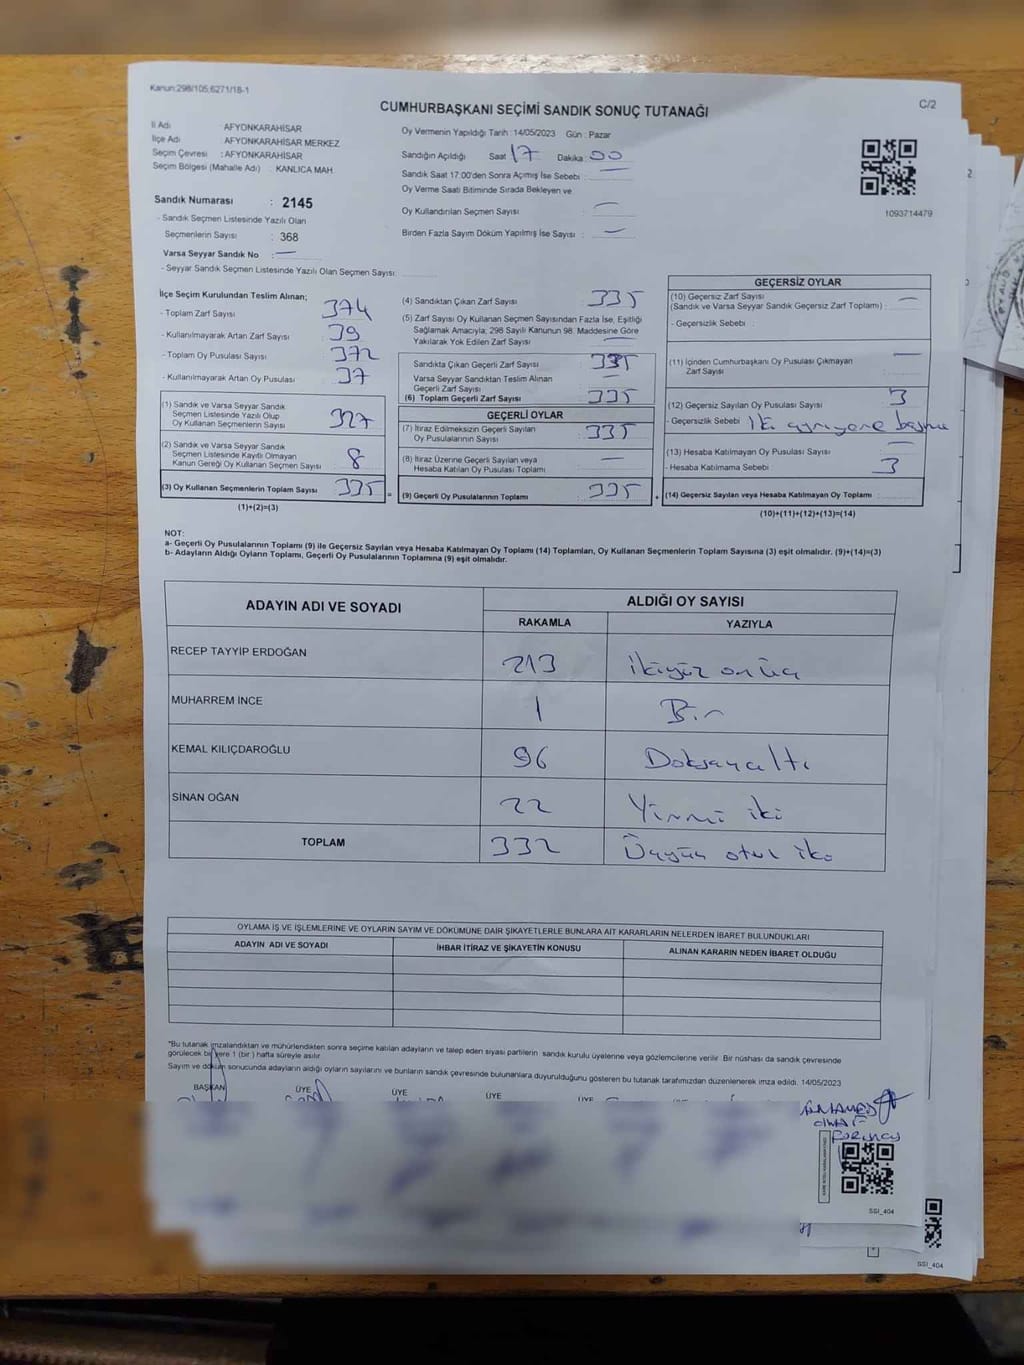 Kanun:298/105,6271/18-1
C/2
CUMHURBAŞKANI SEÇİMİ SANDIK SONUÇ TUTANAĞI
İl Adı AFYONKARAHİSAR
İlçe Adı AFYONKARAHİSAR MERKEZ
Seçim Çevresi : AFYONKARAHİSAR
Seçim Bölgesi (Mahalle Adı) : KANLICA MAH.
Oy Vermenin Yapıldığı Tarih : 14/05/2023 Gün : Pazar
Sandığın Açıldığı Saat 17 Dakika : 00
Sandık Saat 17:00'den Sonra Açımış İse Sebebi : —
Oy Verme Saati Bitiminde Sırada Bekleyen ve
Oy Kullandırılan Seçmen Sayısı : —
Birden Fazla Sayım Döküm Yapılmış İse Sayısı : —
1093714479
Sandık Numarası : 2145
- Sandık Seçmen Listesinde Yazılı Olan
Seçmenlerin Sayısı : 368
Varsa Seyyar Sandık No : —
- Seyyar Sandık Seçmen Listesinde Yazılı Olan Seçmen Sayısı:
İlçe Seçim Kurulundan Teslim Alınan;
- Toplam Zarf Sayısı : 374
- Kullanılmayarak Artan Zarf Sayısı : 39
- Toplam Oy Pusulası Sayısı : 372
- Kullanılmayarak Artan Oy Pusulası : 37
(1) Sandık ve Varsa Seyyar Sandık
Seçmen Listesinde Yazılı Olup
Oy Kullanan Seçmenlerin Sayısı : 327
(2) Sandık ve Varsa Seyyar Sandık
Seçmen Listesinde Kayıtlı Olmayan
Kanun Gereği Oy Kullanan Seçmen Sayısı : 8
(3) Oy Kullanan Seçmenlerin Toplam Sayısı : 335 =
(1)+(2)=(3)
(4) Sandıktan Çıkan Zarf Sayısı : 335
(5) Zarf Sayısı Oy Kullanan Seçmen Sayısından Fazla İse, Eşitliği
Sağlamak Amacıyla; 298 Sayılı Kanunun 98. Maddesine Göre
Yakılarak Yok Edilen Zarf Sayısı : —
Sandıkta Çıkan Geçerli Zarf Sayısı : 335
Varsa Seyyar Sandıktan Teslim Alınan
Geçerli Zarf Sayısı : —
(6) Toplam Geçerli Zarf Sayısı : 335
GEÇERLİ OYLAR
(7) İtiraz Edilmeksizin Geçerli Sayılan
Oy Pusulalarının Sayısı : 335
(8) İtiraz Üzerine Geçerli Sayılan veya
Hesaba Katılan Oy Pusulası Toplamı : —
(9) Geçerli Oy Pusulalarının Toplamı : 335 +
GEÇERSİZ OYLAR
(10) Geçersiz Zarf Sayısı
(Sandık ve Varsa Seyyar Sandık Geçersiz Zarf Toplamı) : —
- Geçersizlik Sebebi :
(11) İçinden Cumhurbaşkanı Oy Pusulası Çıkmayan
Zarf Sayısı : —
(12) Geçersiz Sayılan Oy Pusulası Sayısı : 3
- Geçersizlik Sebebi : İki ayrı yere basma
(13) Hesaba Katılmayan Oy Pusulası Sayısı : —
- Hesaba Katılmama Sebebi : 3
(14) Geçersiz Sayılan veya Hesaba Katılmayan Oy Toplamı :
(10)+(11)+(12)+(13)=(14)
NOT:
a- Geçerli Oy Pusulalarının Toplamı (9) ile Geçersiz Sayılan veya Hesaba Katılmayan Oy Toplamı (14) Toplamları, Oy Kullanan Seçmenlerin Toplam Sayısına (3) eşit olmalıdır. (9)+(14)=(3)
b- Adayların Aldığı Oyların Toplamı, Geçerli Oy Pusulalarının Toplamına (9) eşit olmalıdır.
ADAYIN ADI VE SOYADI ALDIĞI OY SAYISI
RAKAMLA YAZIYLA
RECEP TAYYİP ERDOĞAN 213 İkiyüz onüç
MUHARREM İNCE 1 Bir
KEMAL KILIÇDAROĞLU 96 Doksanaltı
SİNAN OĞAN 22 Yirmi iki
TOPLAM 332 Üçyüz otuz iki
OYLAMA İŞ VE İŞLEMLERİNE VE OYLARIN SAYIM VE DÖKÜMÜNE DAİR ŞİKAYETLERLE BUNLARA AİT KARARLARIN NELERDEN İBARET BULUNDUKLARI
ADAYIN ADI VE SOYADI İHBAR İTİRAZ VE ŞİKAYETİN KONUSU ALINAN KARARIN NEDEN İBARET OLDUĞU
"Bu tutanak imzalandıktan ve mühürlendikten sonra seçime katılan adayların ve talep eden siyasi partilerin sandık kurulu üyelerine veya gözlemcilerine verilir. Bir nüshası da sandık çevresinde
görülecek bir yere 1 (bir ) hafta süreyle asılır.
Sayım ve döküm sonucunda adayların aldığı oyların sayılarını ve bunların sandık çevresinde bulunanlara duyurulduğunu gösteren bu tutanak tarafımızdan düzenlenerek imza edildi. 14/05/2023
BAŞKAN ÜYE ÜYE ÜYE ÜYE
SSI_404
SSI_404